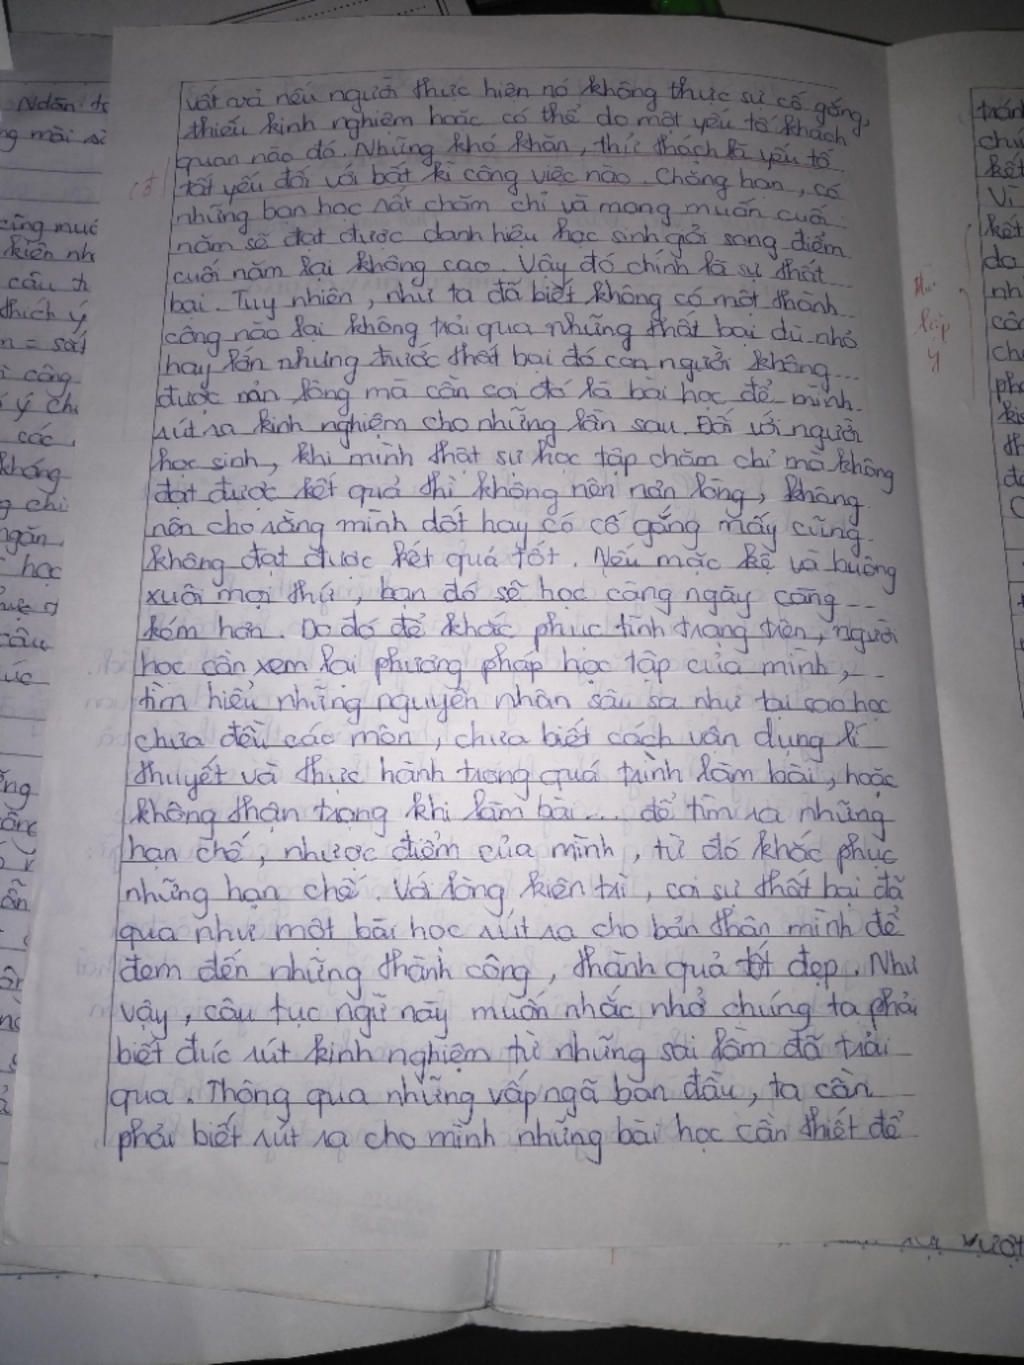 vất vả nếu người thực hiện nó không thực sự cố gắng,
thiếu kinh nghiệm hoặc có thể do một yếu tố khách
quan nào đó. Những khó khăn, thử thách là yếu tố
tất yếu đối với bất kì công việc nào. Chẳng hạn, có
những bạn học rất chăm chỉ và mong muốn cuối
năm sẽ đạt được danh hiệu học sinh giỏi song điểm
cuối năm lại không cao. Vậy đó chính là sự thất
bại. Tuy nhiên, như ta đã biết không có một thành
công nào lại không trải qua những thất bại dù nhỏ
hay lớn nhưng trước thất bại đó con người không
được nản lòng mà cần coi đó là bài học để mình
rút ra kinh nghiệm cho những lần sau. Đối với người
học sinh, khi mình thật sự học tập chăm chỉ mà không
đạt được kết quả thì không nên nản lòng, không
nên cho rằng mình dốt hay có cố gắng mấy cũng
không đạt được kết quả tốt. Nếu mặc kệ và buông
xuôi mọi thứ, bạn đó sẽ học càng ngày càng
kém hơn. Do đó để khắc phục tình trạng trên, người
học cần xem lại phương pháp học tập của mình,
tìm hiểu những nguyên nhân sâu sa như tại sao học
chưa đều các môn, chưa biết cách vận dụng lí
thuyết và thực hành trong quá trình làm bài, hoặc
không thận trọng khi làm bài... để tìm ra những
hạn chế, nhược điểm của mình, từ đó khắc phục
những hạn chế. Với lòng kiên trì, coi sự thất bại đã
qua như một bài học rút ra cho bản thân mình để
đem đến những thành công, thành quả tốt đẹp. Như
vậy, câu tục ngữ này muốn nhắc nhở chúng ta phải
biết đúc rút kinh nghiệm từ những sai lầm đã trải
qua. Thông qua những vấp ngã ban đầu, ta cần
phải biết rút ra cho mình những bài học cần thiết để
lặp
ý